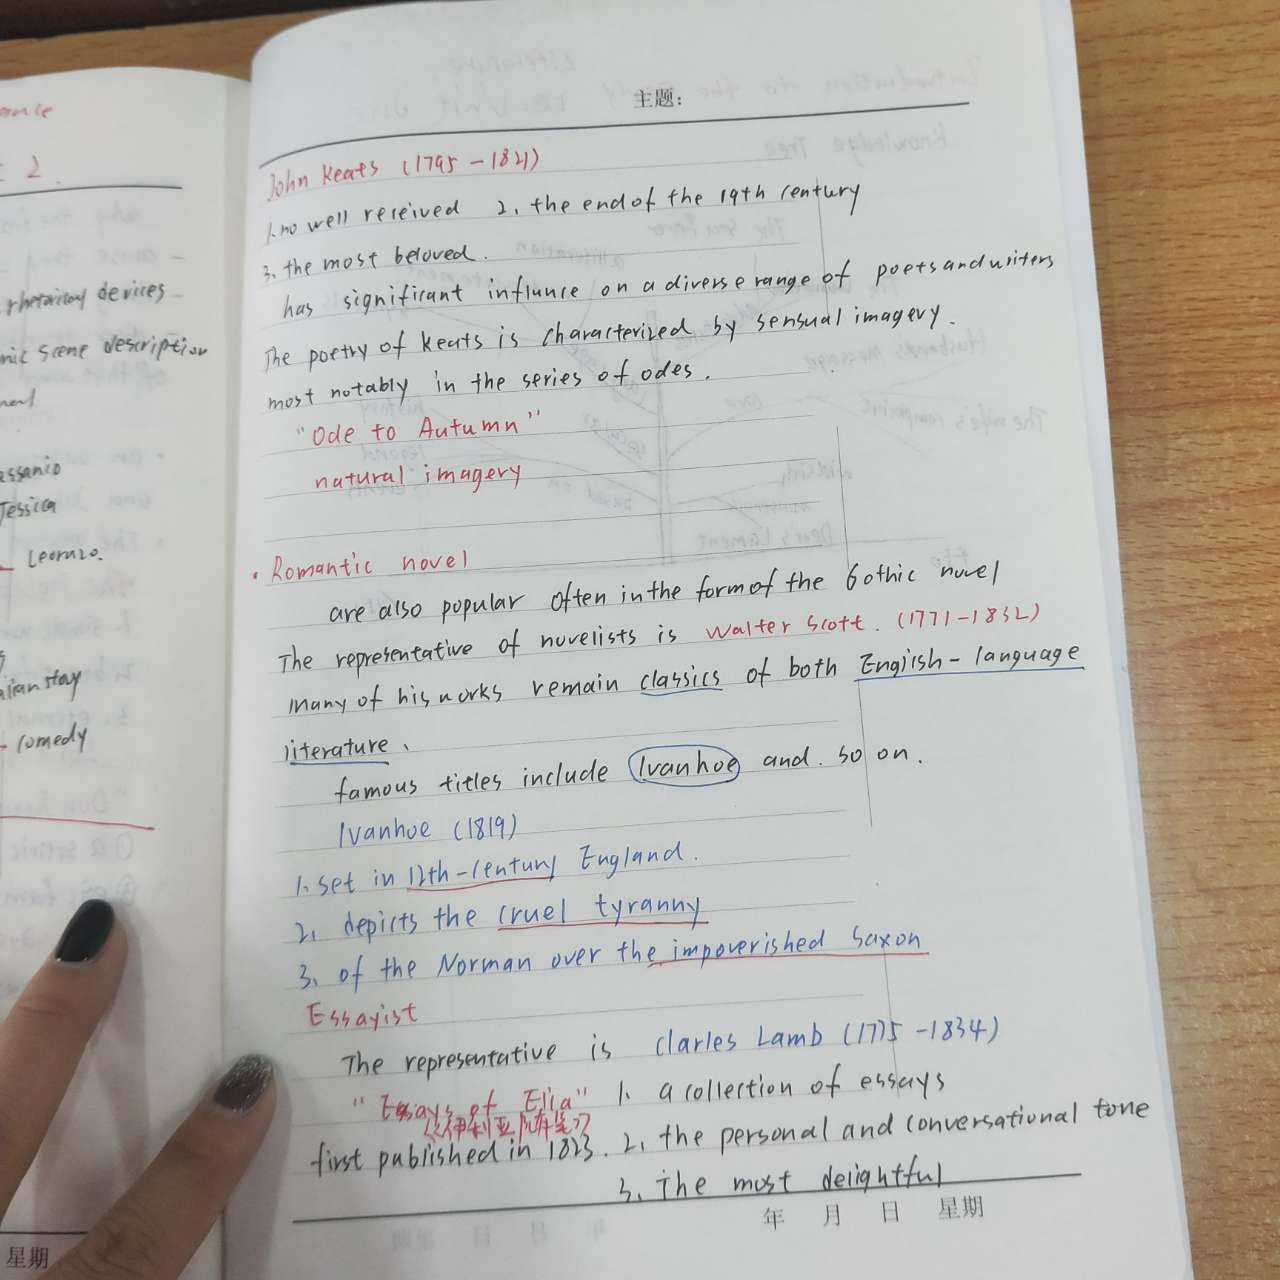 ance
2
rhetorical devices
nic scene description
ment
assanio
Jessica
Leornzo.
alian stay
comedy
星期
主题：
John Keats (1795 - 1821)
1. no well received 2. the end of the 19th century
3. the most beloved.
has significant influnce on a diverse range of poets and writers
The poetry of Keats is characterized by sensual imagery.
most notably in the series of odes.
"Ode to Autumn"
natural imagery
· Romantic novel
are also popular often in the form of the Gothic novel
The representative of novelists is Walter Scott. (1771-1832)
many of his works remain classics of both Engirsh - language
literature、
famous titles include Ivanhoe and so on.
Ivanhoe (1819)
1. set in 12th-century England.
2. depicts the cruel tyranny
3. of the Norman over the impoverished Saxon
Essayist
The representative is Clarles Lamb (1775 - 1834)
"Essays of Elia" 1. a collection of essays
《伊利亚随笔》
first published in 1823. 2. the personal and conversational tone
3. The most delightful
年 月 日 星期